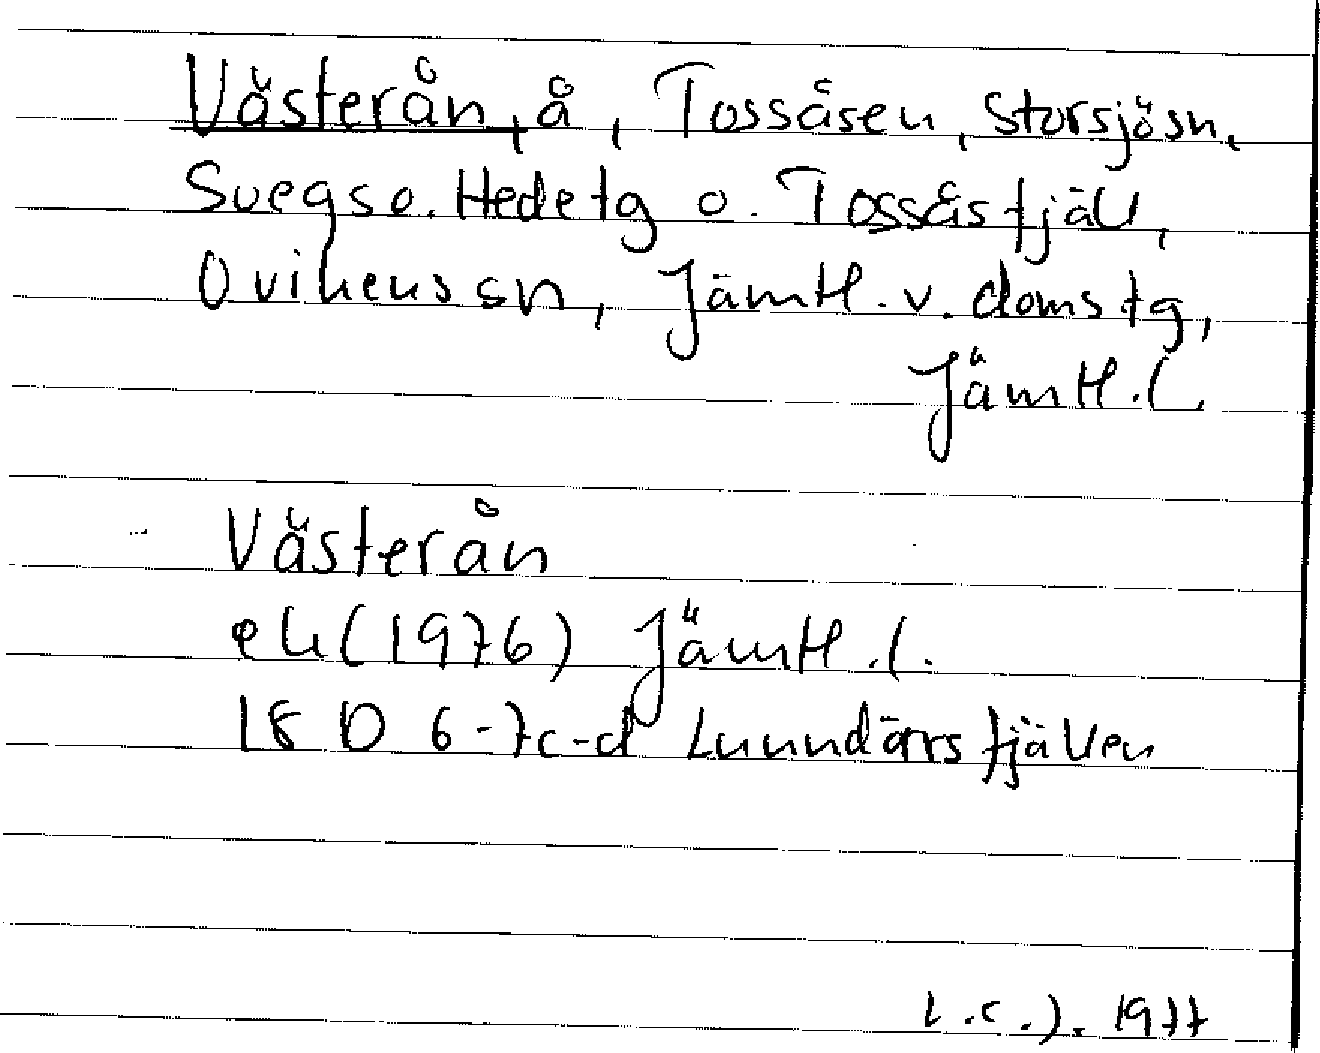 Västerån, å, Tossåsen, Storsjösn,
Svegs o. Hede tg o. Tossåsfjäll,
Ovikens sn, Jämtl. v. doms tg,
Jämtl. l.
Västerån
ek (1976) Jämtl. l.
18 D 6-7c-d Lunndörrsfjällen
1977